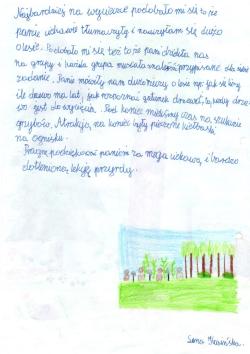 Najbardziej na wycieczce podobało mi się to że
panie ciekawie tłumaczyły i nauczyłam się dużo
o lesie. Podobało mi się też to że pani dzieliła nas
na grupy i każda grupa musiała znaleźć przypisane dla siebie
zadanie. Panie mówiły nam dużo rzeczy o lesie np: jak się liczy
ile drzewo ma lat, jak rozpoznać gatunek drzewa, kiedy drze-
wo jest do wycięcia. Pod koniec mieliśmy czas na szukanie
grzybów. Atrakcją, na koniec były pieczone kiełbaski
na ognisku.
Pragnę podziękować paniom za moją ciekawą, i bardzo
dotlenioną lekcję przyrody.
Lena